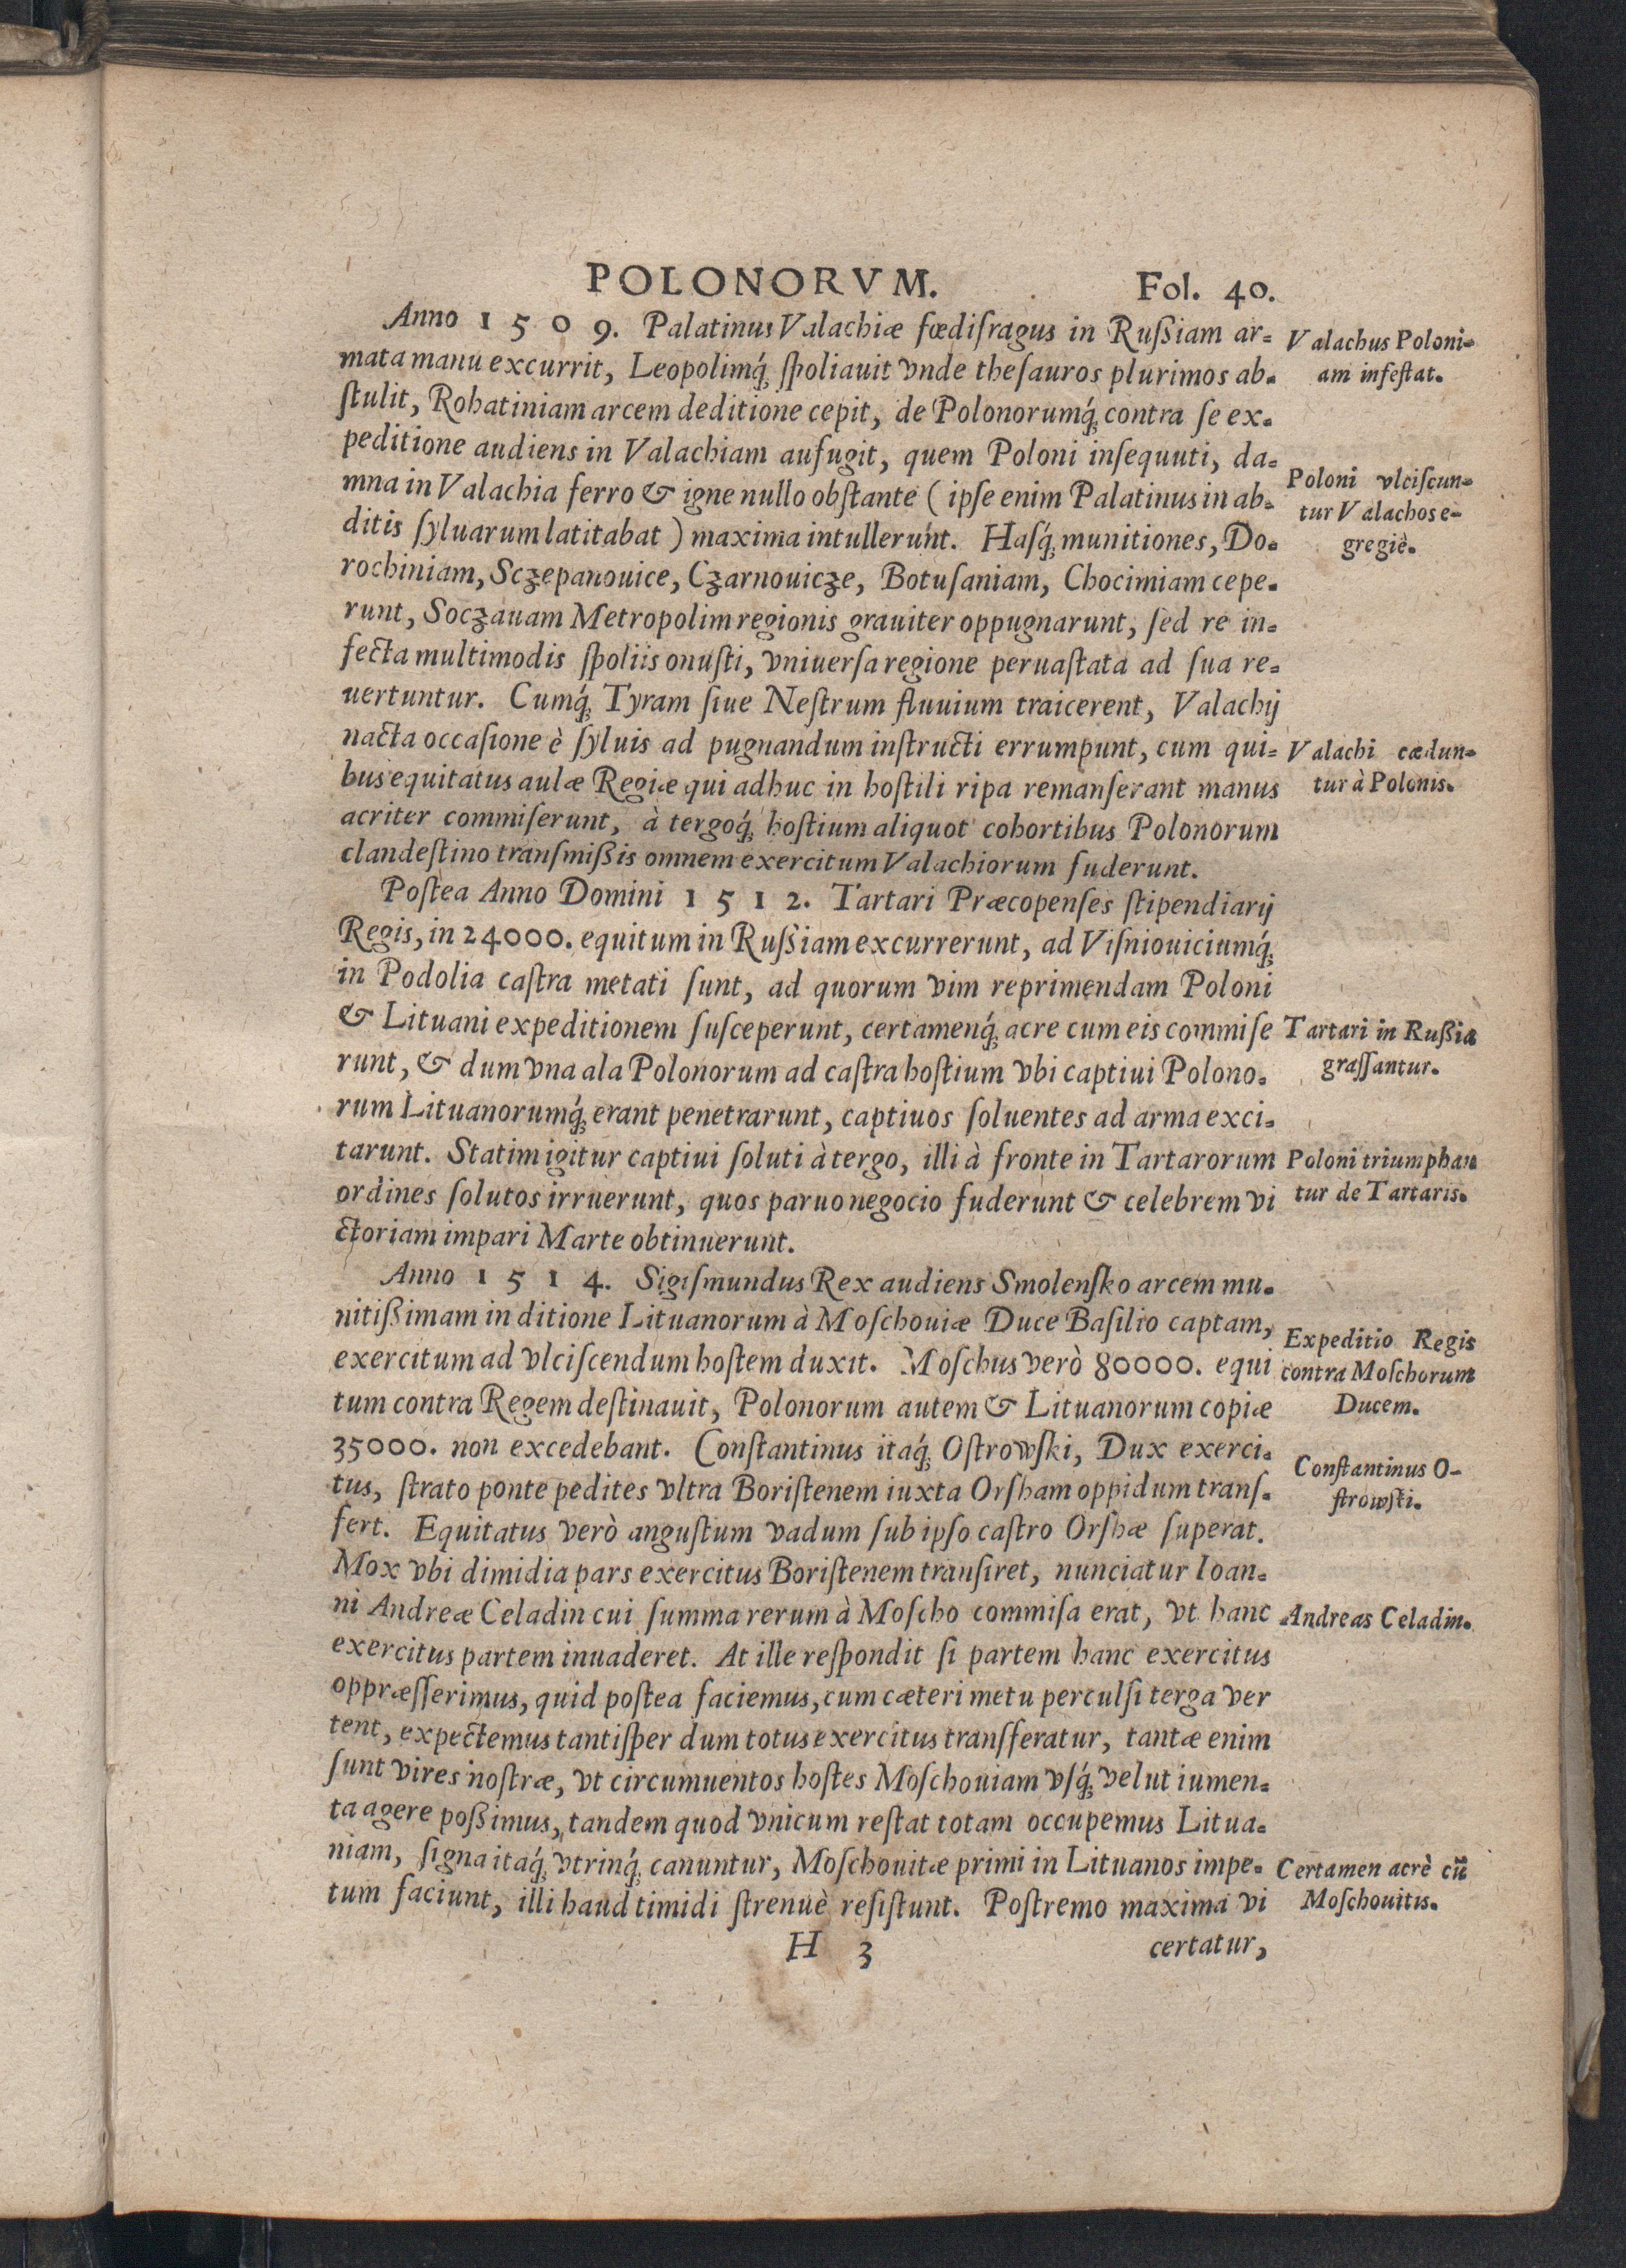 POLONORVM. Fol. 40.
Anno 1509. Palatinus Valachiæ fœdifragus in Rußiam ar=
mata manu excurrit, Leopolimq́; ſpoliauit vnde theſauros plurimos ab=
ſtulit, Rohatiniam arcem deditione cepit, de Polonorumq́; contra ſe ex=
peditione audiens in Valachiam aufugit, quem Poloni inſequuti, da=
mna in Valachia ferro & igne nullo obſtante (ipſe enim Palatinus in ab=
ditis ſyluarum latitabat) maxima intullerunt. Haſq́; munitiones, Do=
rochiniam, Sczepanouice, Czarnouicze, Botuſaniam, Chocimiam cepe=
runt, Soczauam Metropolim regionis grauiter oppugnarunt, ſed re in=
fecta multimodis ſpoliis onuſti, vniuerſa regione peruaſtata ad ſua re=
uertuntur. Cumq́; Tyram ſiue Neſtrum fluuium traicerent, Valachij
nacta occaſione è ſyluis ad pugnandum inſtructi errumpunt, cum qui=
bus equitatus aulæ Regiæ qui adhuc in hoſtili ripa remanſerant manus
acriter commiſerunt, à tergoq́; hoſtium aliquot cohortibus Polonorum
clandeſtino tranſmißis omnem exercitum Valachiorum fuderunt.
Poſtea Anno Domini 1512. Tartari Præcopenſes ſtipendiarij
Regis, in 24000. equitum in Rußiam excurrerunt, ad Viſniouiciumq́;
in Podolia caſtra metati ſunt, ad quorum vim reprimendam Poloni
& Lituani expeditionem ſuſceperunt, certamenq́; acre cum eis commiſe
runt, & dum vna ala Polonorum ad caſtra hoſtium vbi captiui Polono=
rum Lituanorumq́; erant penetrarunt, captiuos ſoluentes ad arma exci=
tarunt. Statim igitur captiui ſoluti à tergo, illi à fronte in Tartarorum
ordines ſolutos irruerunt, quos paruo negocio fuderunt & celebrem vi
ctoriam impari Marte obtinuerunt.
Anno 1514. Sigiſmundus Rex audiens Smolenſko arcem mu=
nitißimam in ditione Lituanorum à Moſchouiæ Duce Baſilio captam,
exercitum ad vlciſcendum hoſtem duxit. Moſchus verò 80000. equi
tum contra Regem deſtinauit, Polonorum autem & Lituanorum copiæ
35000. non excedebant. Conſtantinus itaq́; Oſtrowſki, Dux exerci=
tus, ſtrato ponte pedites vltra Boriſtenem iuxta Orſham oppidum tranſ=
fert. Equitatus verò anguſtum vadum ſub ipſo caſtro Orſhæ ſuperat.
Mox vbi dimidia pars exercitus Boriſtenem tranſiret, nunciatur Ioan=
ni Andreæ Celadin cui ſumma rerum à Moſcho commiſa erat, vt hanc
exercitus partem inuaderet. At ille reſpondit ſi partem hanc exercitus
oppræſſerimus, quid poſtea faciemus, cum cæteri metu perculſi terga ver
tent, expectemus tantiſper dum totus exercitus tranſferatur, tantæ enim
ſunt vires noſtræ, vt circumuentos hoſtes Moſchouiam vſq́; velut iumen=
ta agere poßimus, tandem quod vnicum reſtat totam occupemus Litua=
niam, ſigna itaq́; vtrinq́; canuntur, Moſchouitæ primi in Lituanos impe=
tum faciunt, illi haud timidi ſtrenuè reſiſtunt. Poſtremo maxima vi
H 3 certatur,
Valachus Poloni=
am infeſtat.
Poloni vlciſcun=
tur Valachos e-
gregiè.
Valachi cædun=
tur à Polonis.
Tartari in Rußia
graſſantur.
Poloni triumphan
tur de Tartaris.
Expeditio Regis
contra Moſchorum
Ducem.
Conſtantinus O-
ſtrowſki.
Andreas Celadin.
Certamen acrè cū
Moſchouitis.